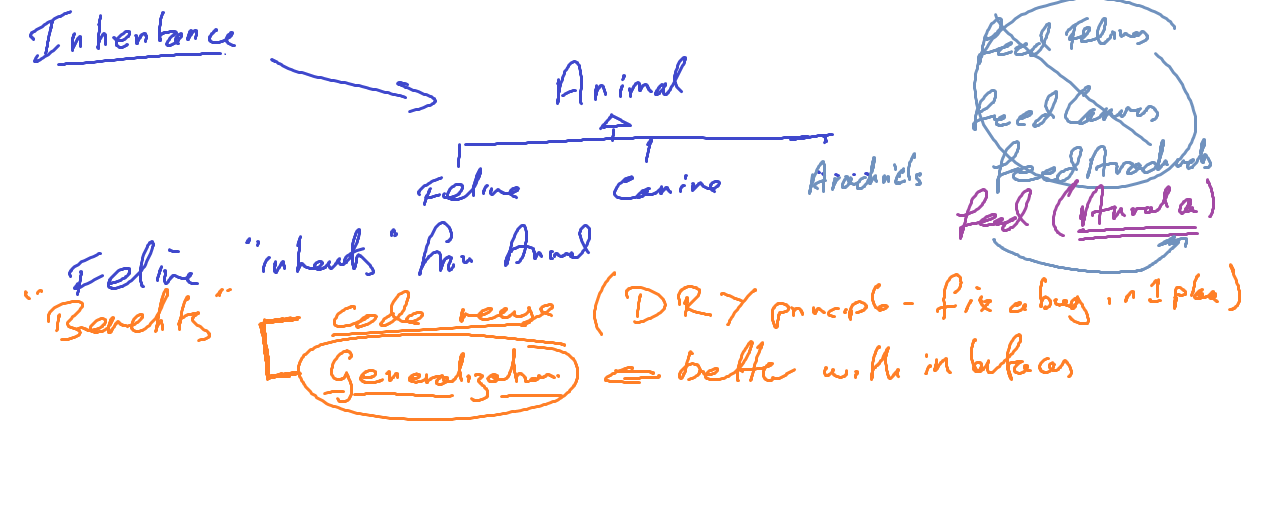 Inheritance
Animal
Feline Canine Arachnids
feed Felines
feed Canines
feed Arachnids
feed (Animal a)
Feline "inherits" from Animal
"Benefits"
code reuse (DRY principle - fix a bug in 1 place)
Generalization ⇐ better with interfaces